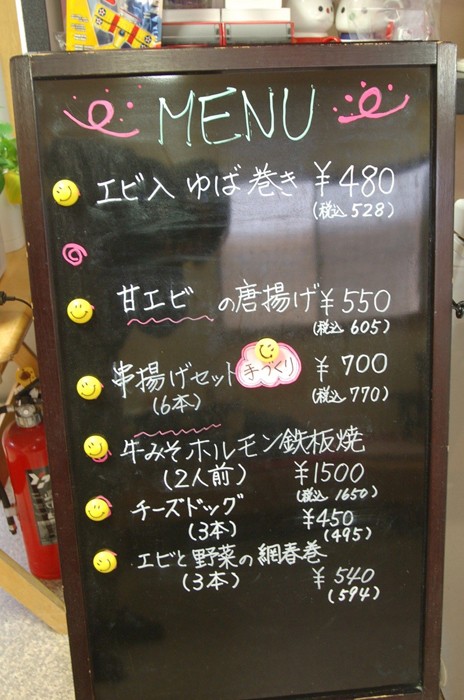 MENU
エビ入 ゆば巻き ¥480
(税込 528)
甘エビ の唐揚げ ¥550
(税込 605)
串揚げセット 手づくり ¥700
(6本) (税込 770)
牛みそホルモン鉄板焼
(2人前) ¥1500
(税込 1650)
チーズドッグ ¥450
(3本) (495)
エビと野菜の網春巻
(3本) ¥540
(594)